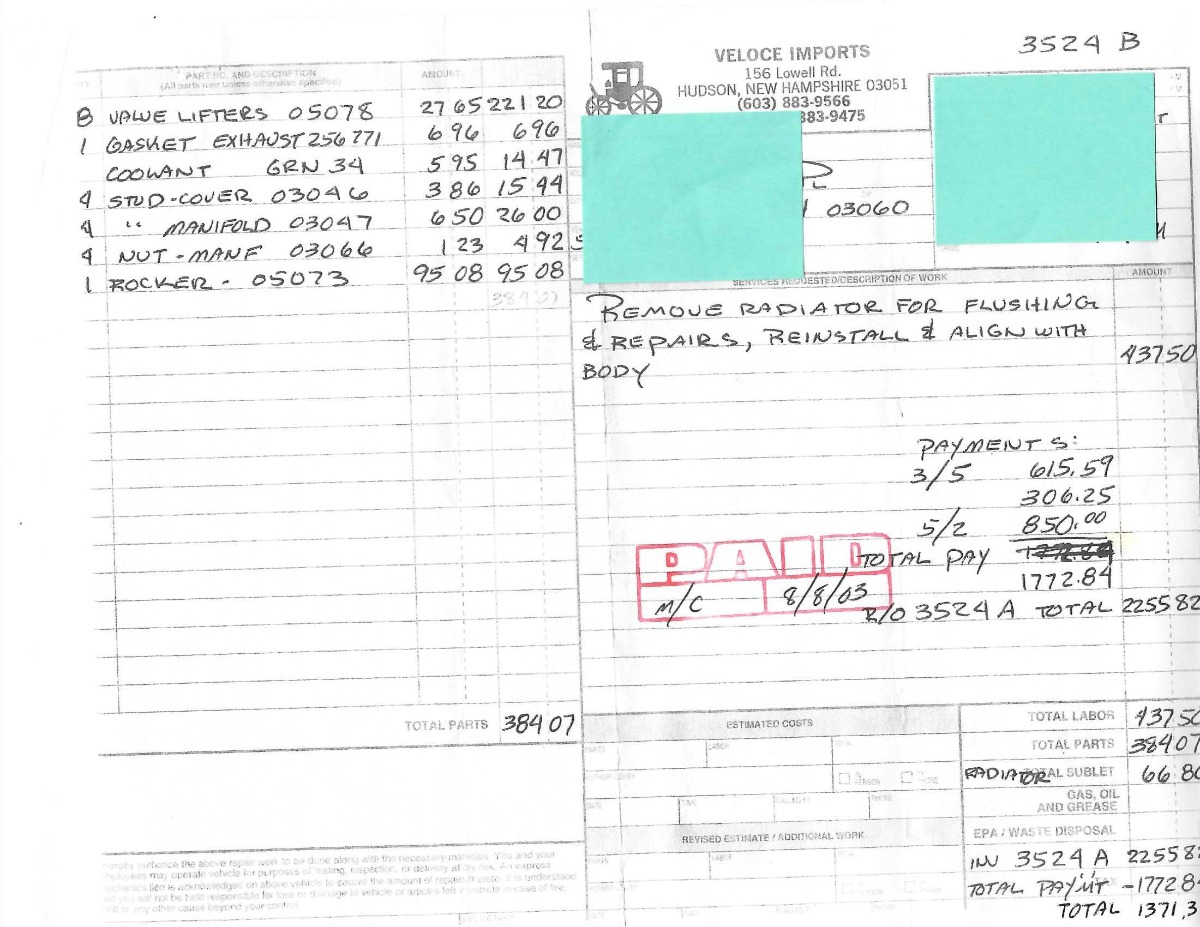 3524 B
VELOCE IMPORTS
156 Lowell Rd.
HUDSON, NEW HAMPSHIRE 03051
(603) 883-9566
883-9475
03060
PART NO. AND DESCRIPTION AMOUNT
(All parts new unless otherwise specified)
8 VALVE LIFTERS 05078 27 65 221 20
1 GASKET EXHAUST 256771 6 96 6 96
COOLANT GRN 34 5 95 14 47
4 STUD-COVER 03046 3 86 15 44
4 " MANIFOLD 03047 6 50 26 00
4 NUT-MANF 03066 1 23 4 92
1 ROCKER - 05073 95 08 95 08
384 07
TOTAL PARTS 384 07
SERVICES REQUESTED/DESCRIPTION OF WORK AMOUNT
REMOVE RADIATOR FOR FLUSHING
& REPAIRS, REINSTALL & ALIGN WITH
BODY 437 50
PAYMENTS:
3/5 615.59
306.25
5/2 850.00
TOTAL PAY
1772.84
PAID
M/C 8/8/03
R/O 3524 A TOTAL 2255 82
ESTIMATED COSTS
PARTS LABOR
IN PERSON PHONE
DATE TIME CALLED BY PHONE
REVISED ESTIMATE / ADDITIONAL WORK
PARTS LABOR
TOTAL LABOR 437 50
TOTAL PARTS 384 07
RADIATOR TOTAL SUBLET 66 80
GAS, OIL
AND GREASE
EPA / WASTE DISPOSAL
INV 3524 A 2255 82
TAX
TOTAL PAYMT -1772 84
TOTAL 1371.3
hereby authorize the above repair work to be done along with the necessary materials. You and your
employees may operate vehicle for purposes of testing, inspection, or delivery at my risk. An express
mechanics lien is acknowledged on above vehicle to secure the amount of repairs thereto. It is understood
that you will not be held responsible for loss or damage to vehicle or articles left in vehicle in case of fire,
theft or any other cause beyond your control.